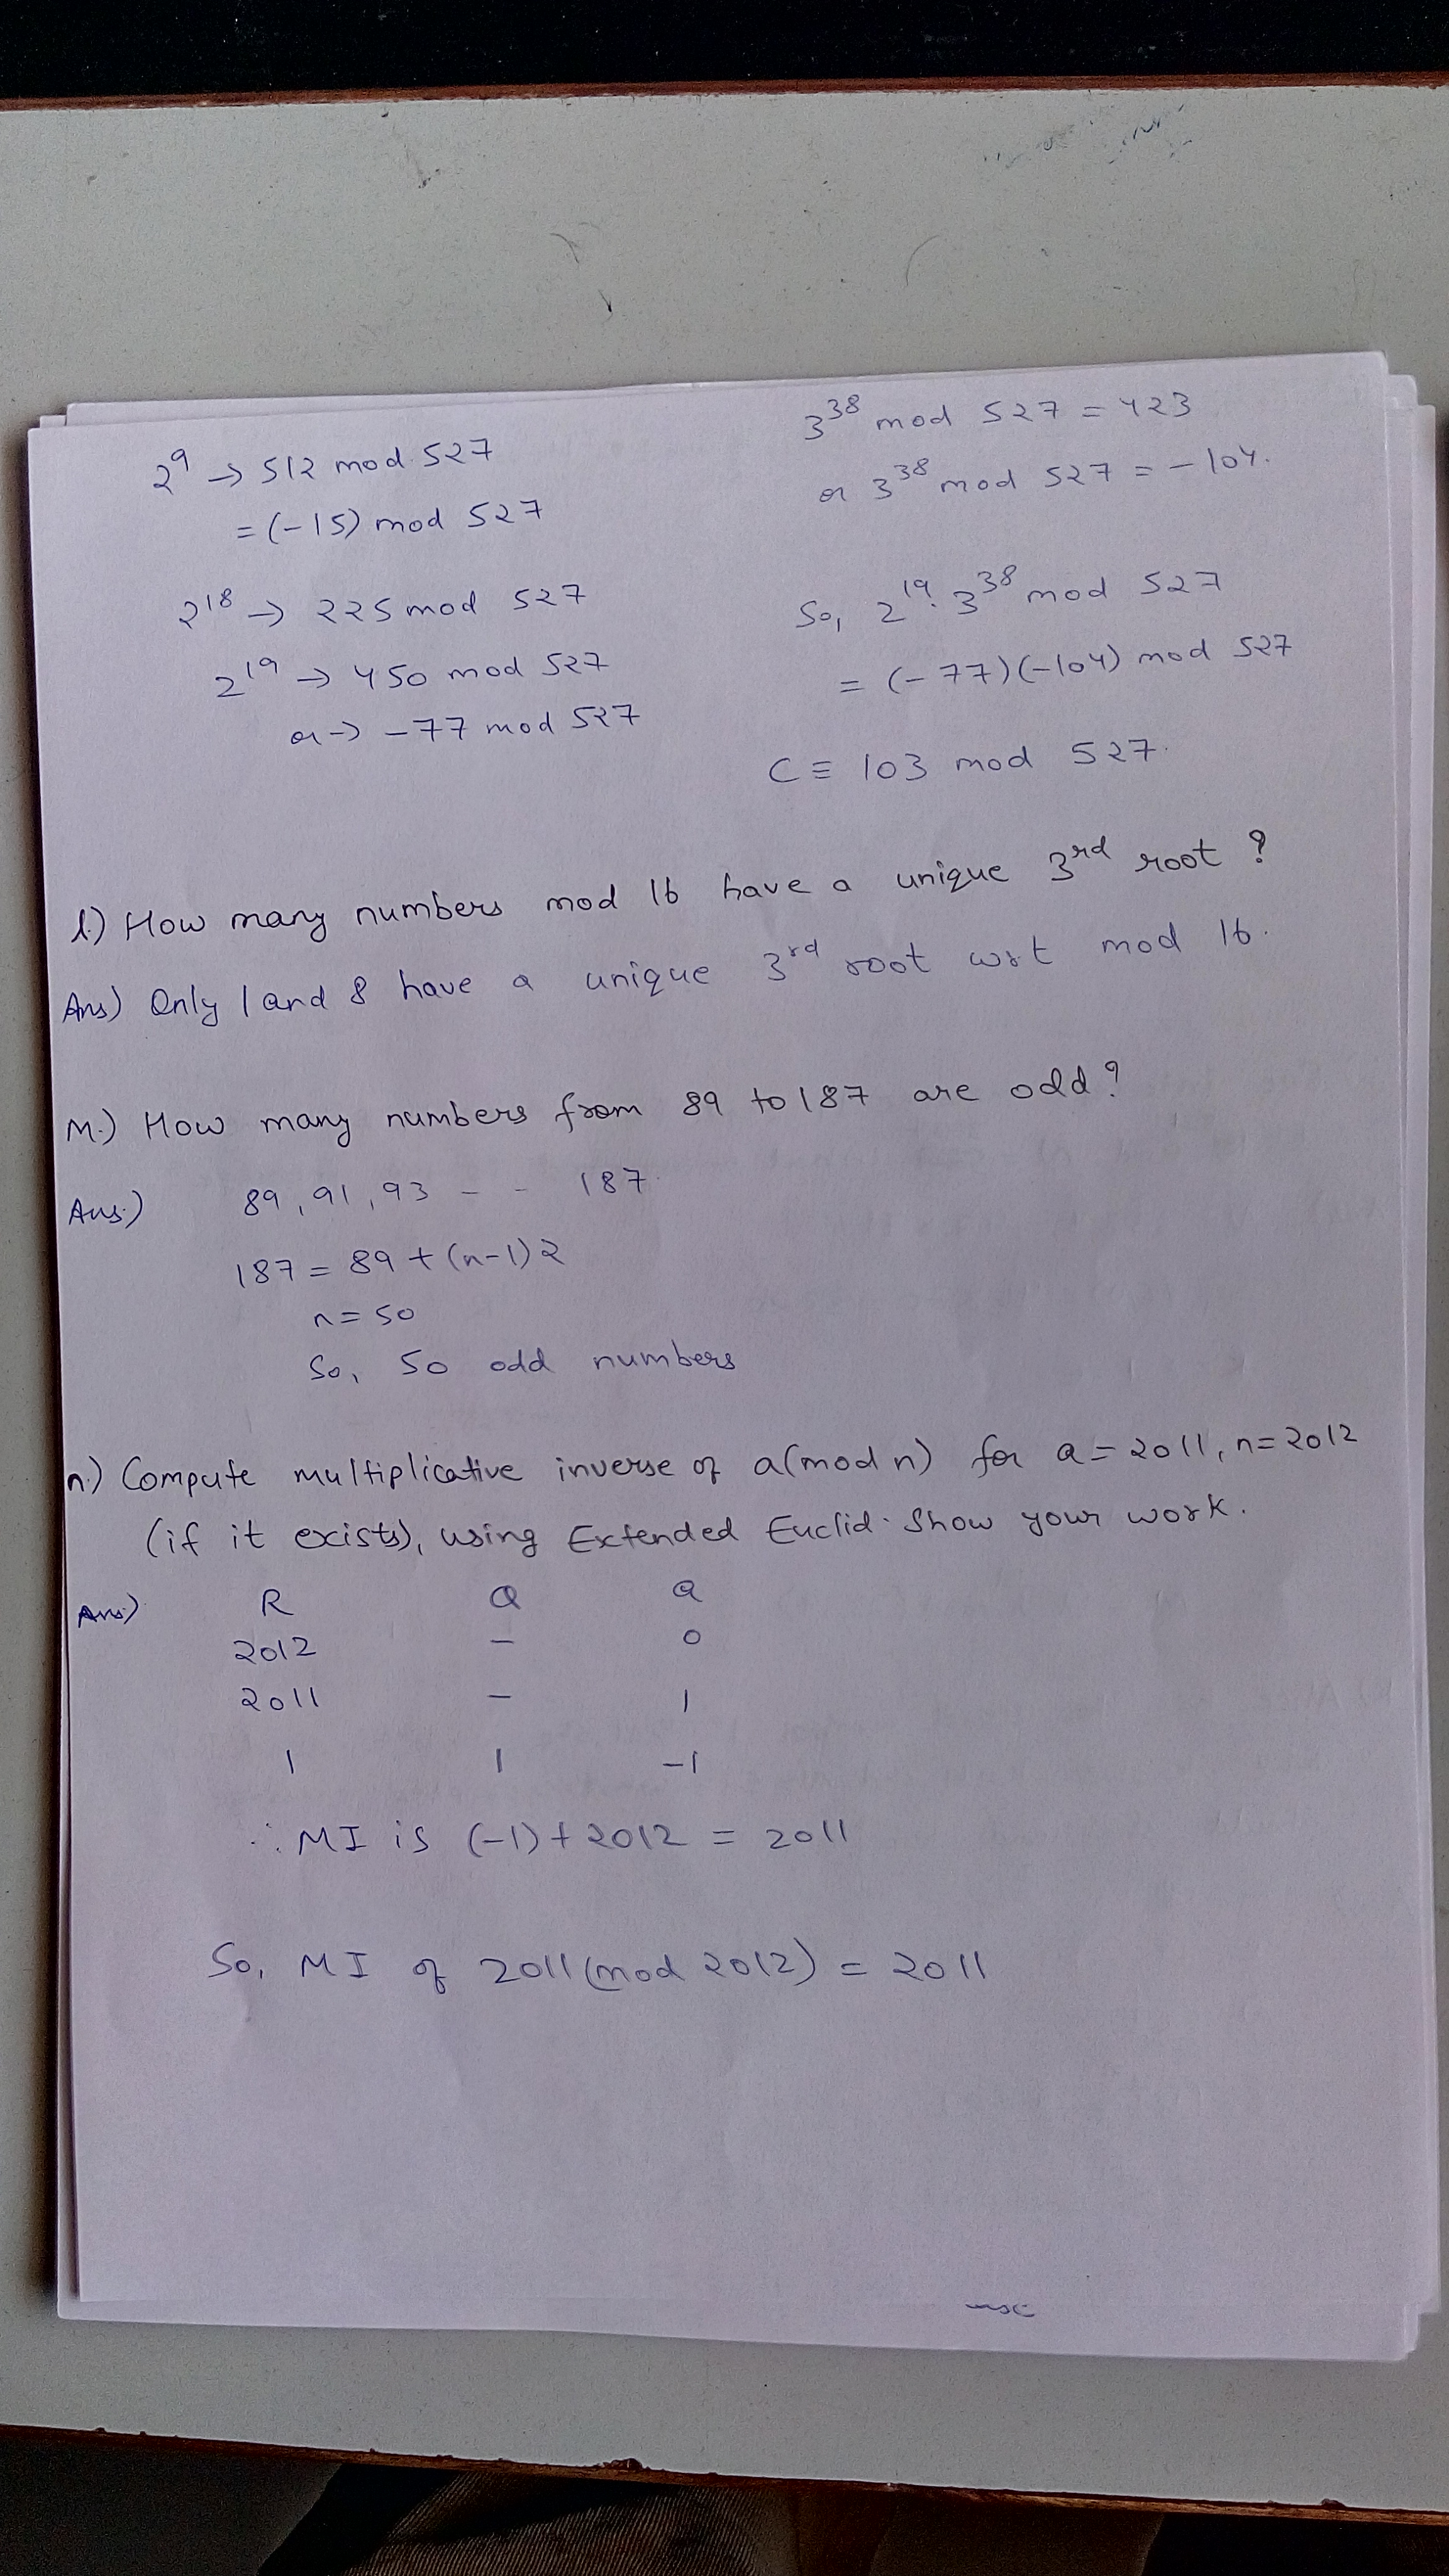 2⁹ → 512 mod 527
= (-15) mod 527
2¹⁸ → 225 mod 527
2¹⁹ → 450 mod 527
or → -77 mod 527
3³⁸ mod 527 = 423
or 3³⁸ mod 527 = -104.
So, 2¹⁹. 3³⁸ mod 527
= (-77)(-104) mod 527
C ≡ 103 mod 527.
l.) How many numbers mod 16 have a unique 3rd root ?
Ans) Only 1 and 8 have a unique 3rd root wrt mod 16.
M.) How many numbers from 89 to 187 are odd?
Ans.) 89, 91, 93 - - 187.
187 = 89 + (n-1)2
n = 50
So, 50 odd numbers
n.) Compute multiplicative inverse of a(mod n) for a = 2011, n = 2012
(if it exists), using Extended Euclid. Show your work.
Ans.) R Q a
2012 - 0
2011 - 1
1 1 -1
∴ MI is (-1) + 2012 = 2011
So, MI of 2011 (mod 2012) = 2011